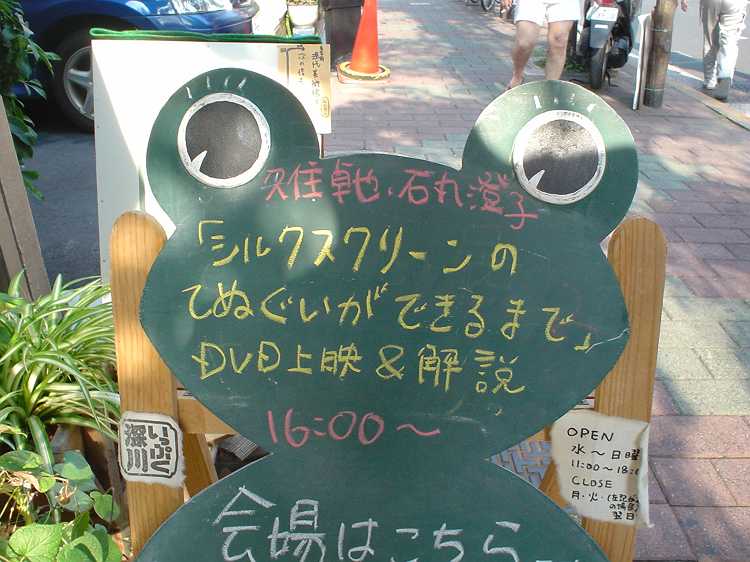 久住卓也、石丸澄子
「シルクスクリーンの
てぬぐいができるまで」
DVD上映&解説
16:00〜
会場はこちら
深川
いっぷく
OPEN
水〜日曜
11:00〜18:0
CLOSE
月・火・(左記が
の場合
翌日